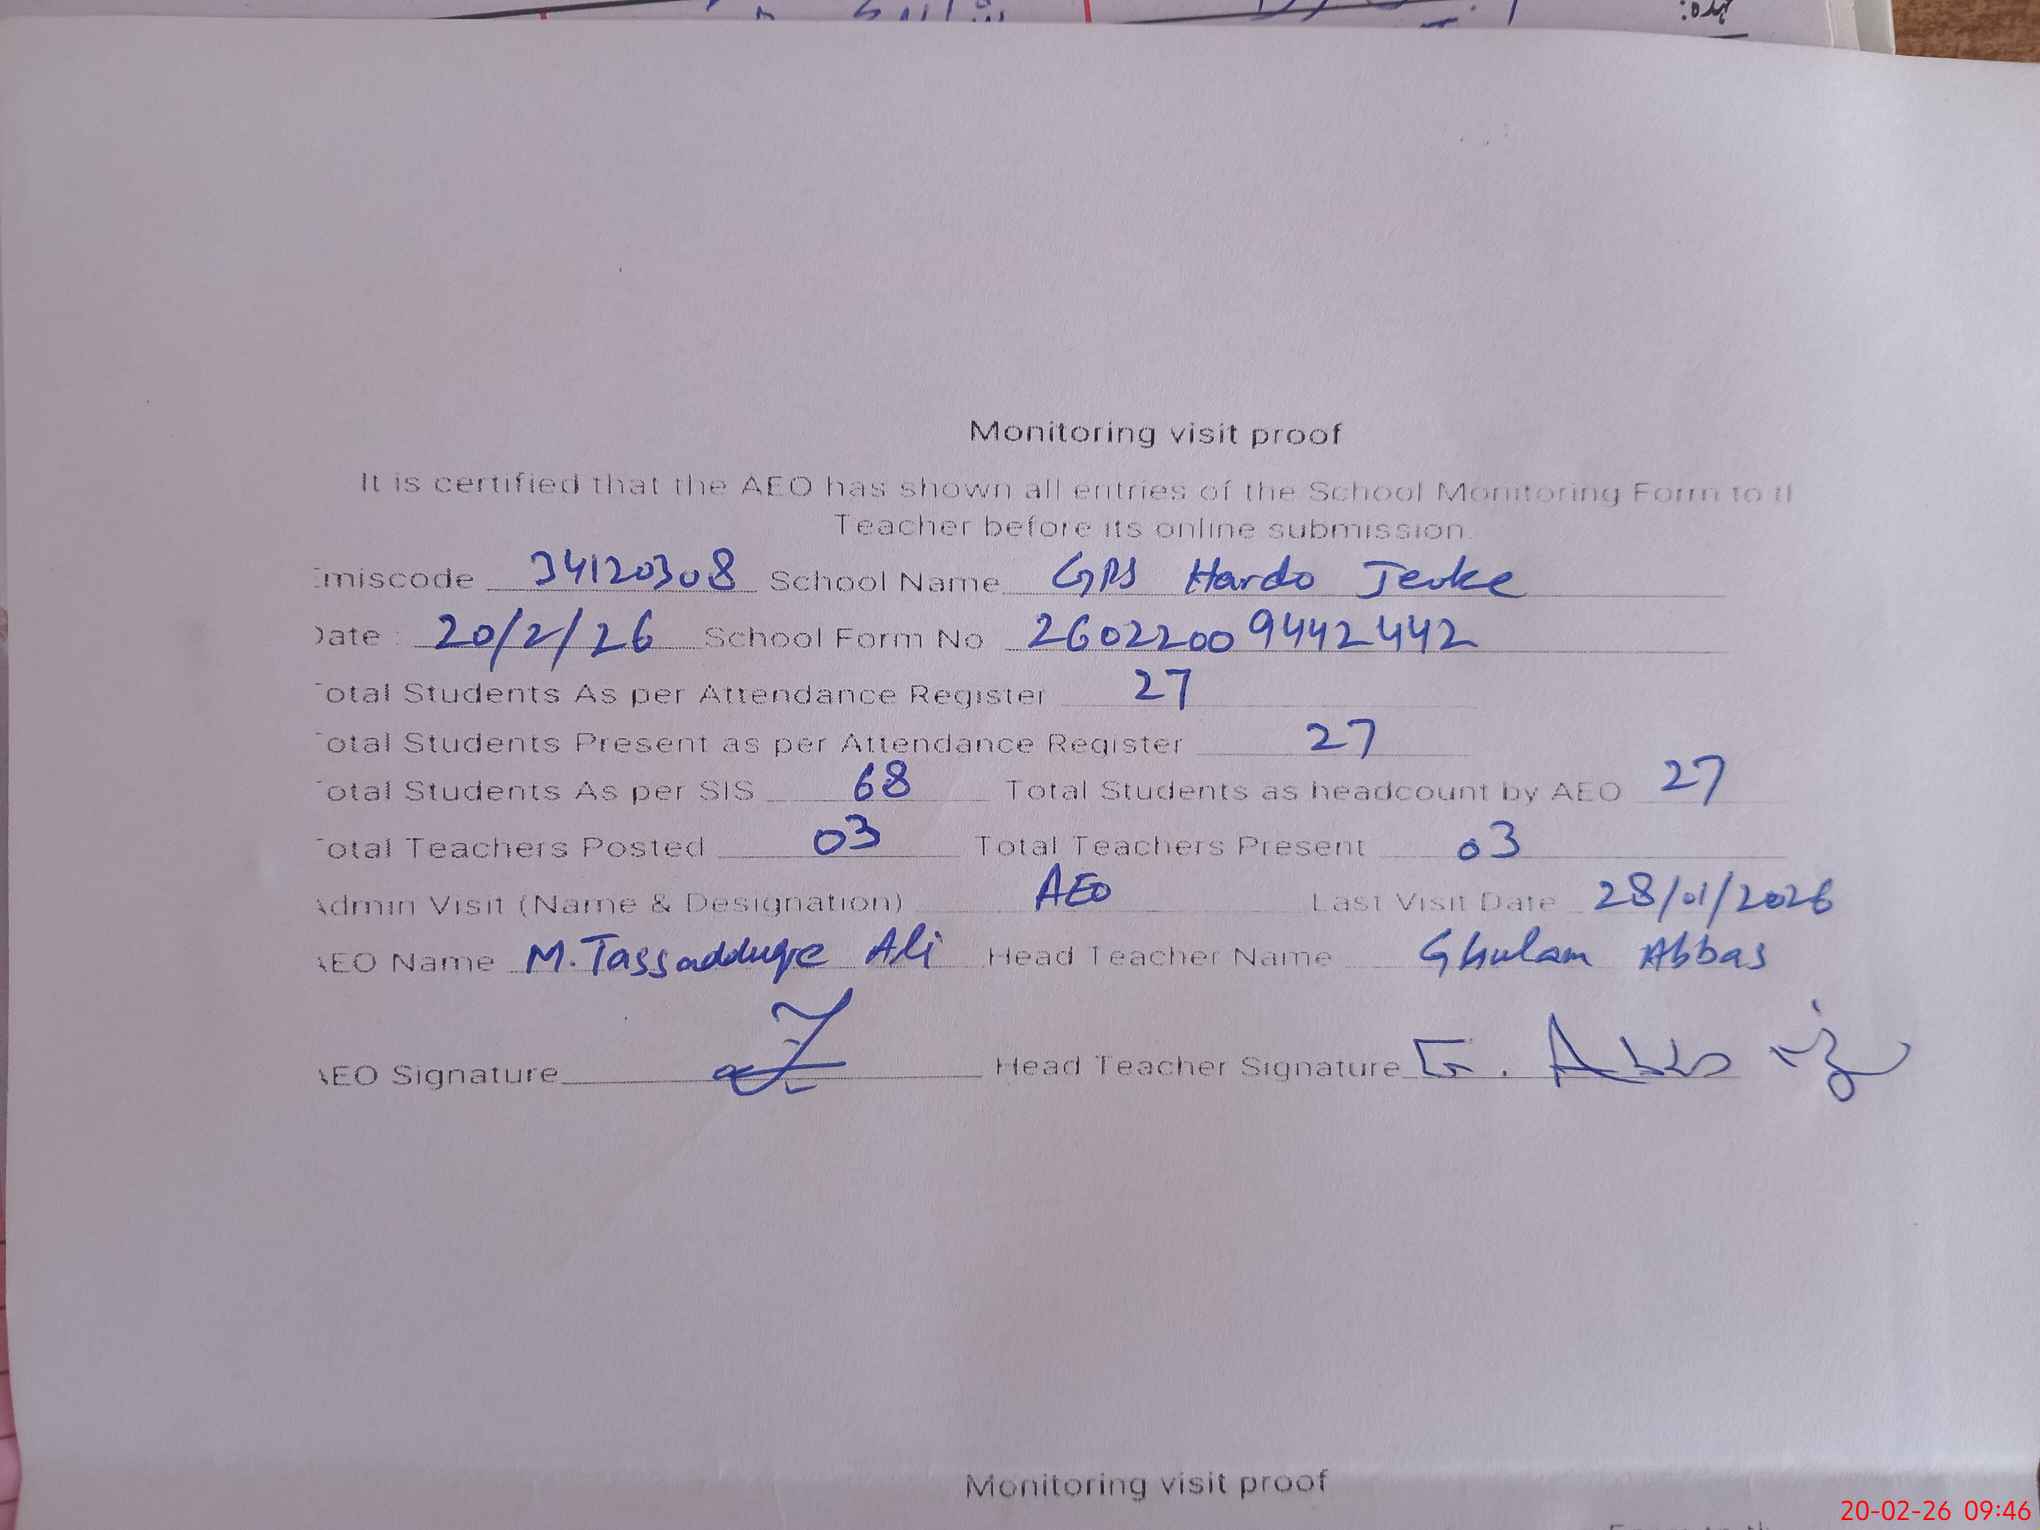 Monitoring visit proof
It is certified that the AEO has shown all entries of the School Monitoring Form to t
Teacher before its online submission.
Emiscode 34120308 School Name GPS Hardo Jevke
Date : 20/2/26 School Form No 26022009442442
Total Students As per Attendance Register 27
Total Students Present as per Attendance Register 27
Total Students As per SIS 68 Total Students as headcount by AEO 27
Total Teachers Posted 03 Total Teachers Present 03
Admin Visit (Name & Designation) AEO Last Visit Date 28/01/2026
AEO Name M. Tassadduqe Ali Head Teacher Name Ghulam Abbas
AEO Signature Head Teacher Signature G. Abbas
Monitoring visit proof
20-02-26 09:46